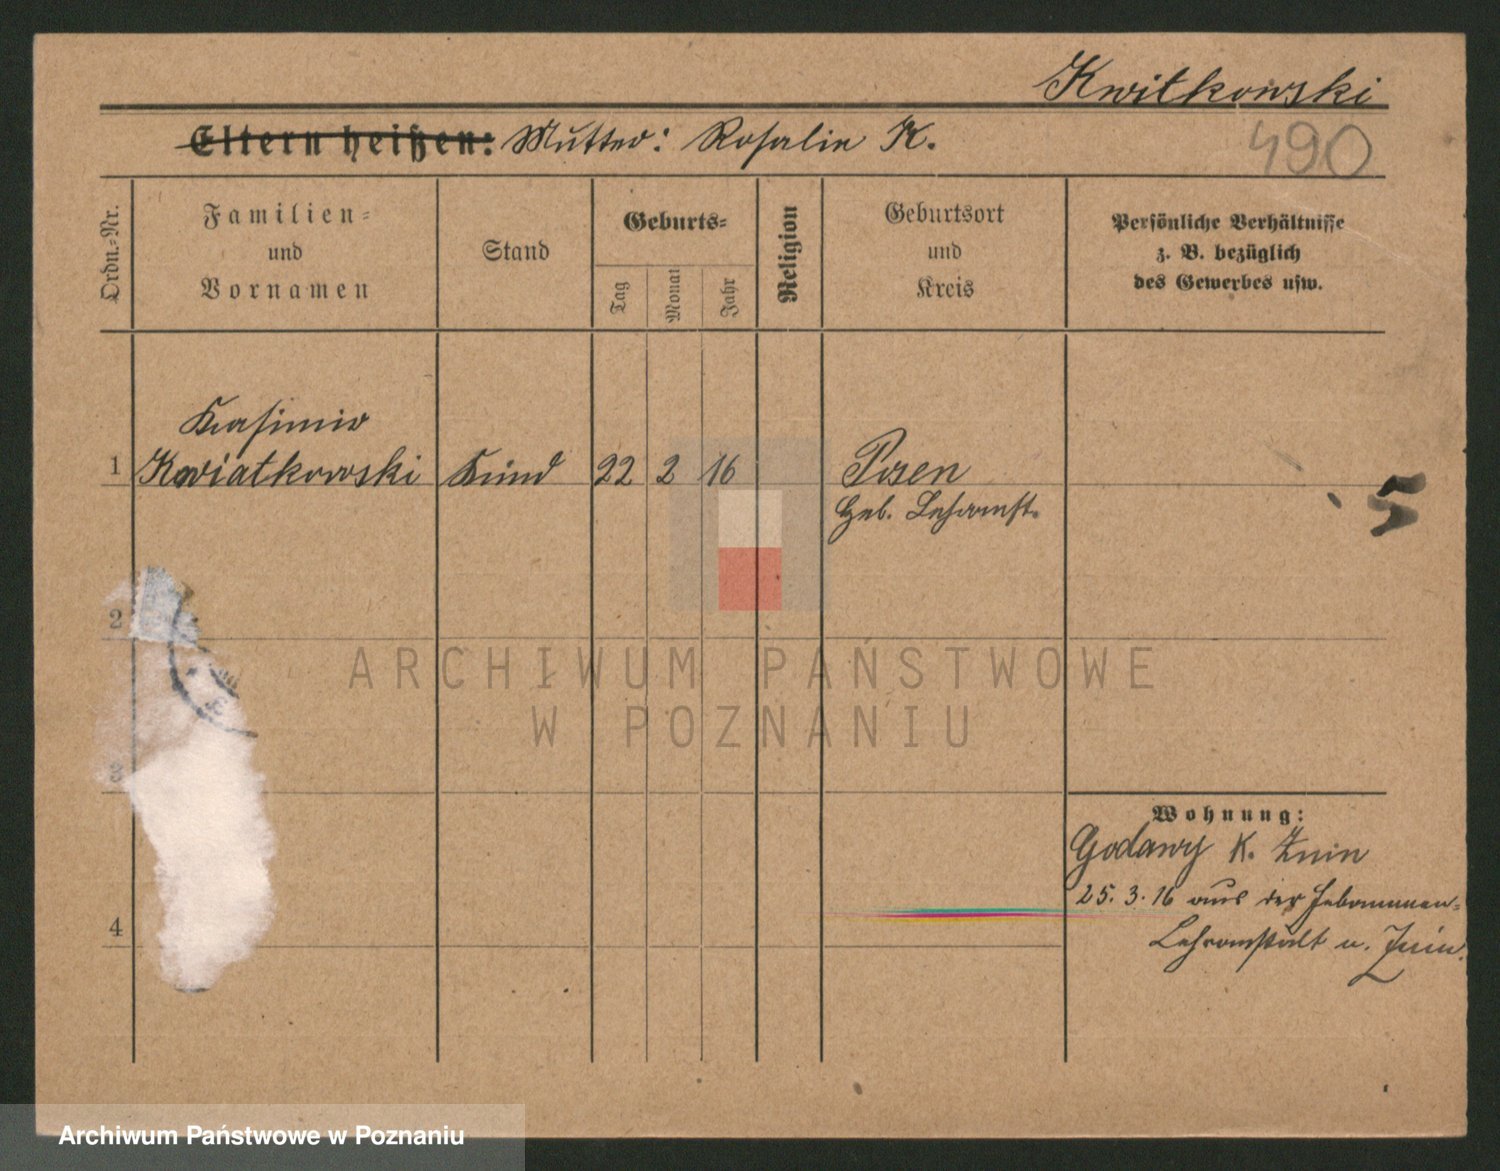 Kwitkowski
Eltern heißen: Mutter: Rosalie K.
490
Ordn.=Nr.
Familien=
und
Vornamen
Stand
Geburts=
Tag
Monat
Jahr
Religion
Geburtsort
und
Kreis
Persönliche Verhältnisse
z. B. bezüglich
des Gewerbes usw.
Kasimir
1 Kwiatkowski Kind 22 2 16 Posen
Heb. Lehranst.
5
2
ARCHIWUM PAŃSTWOWE
W POZNANIU
3
Wohnung:
Godawy K. Znin
25. 3. 16 aus der Hebammen=
4
Lehranstalt n. Znin.
Archiwum Państwowe w Poznaniu